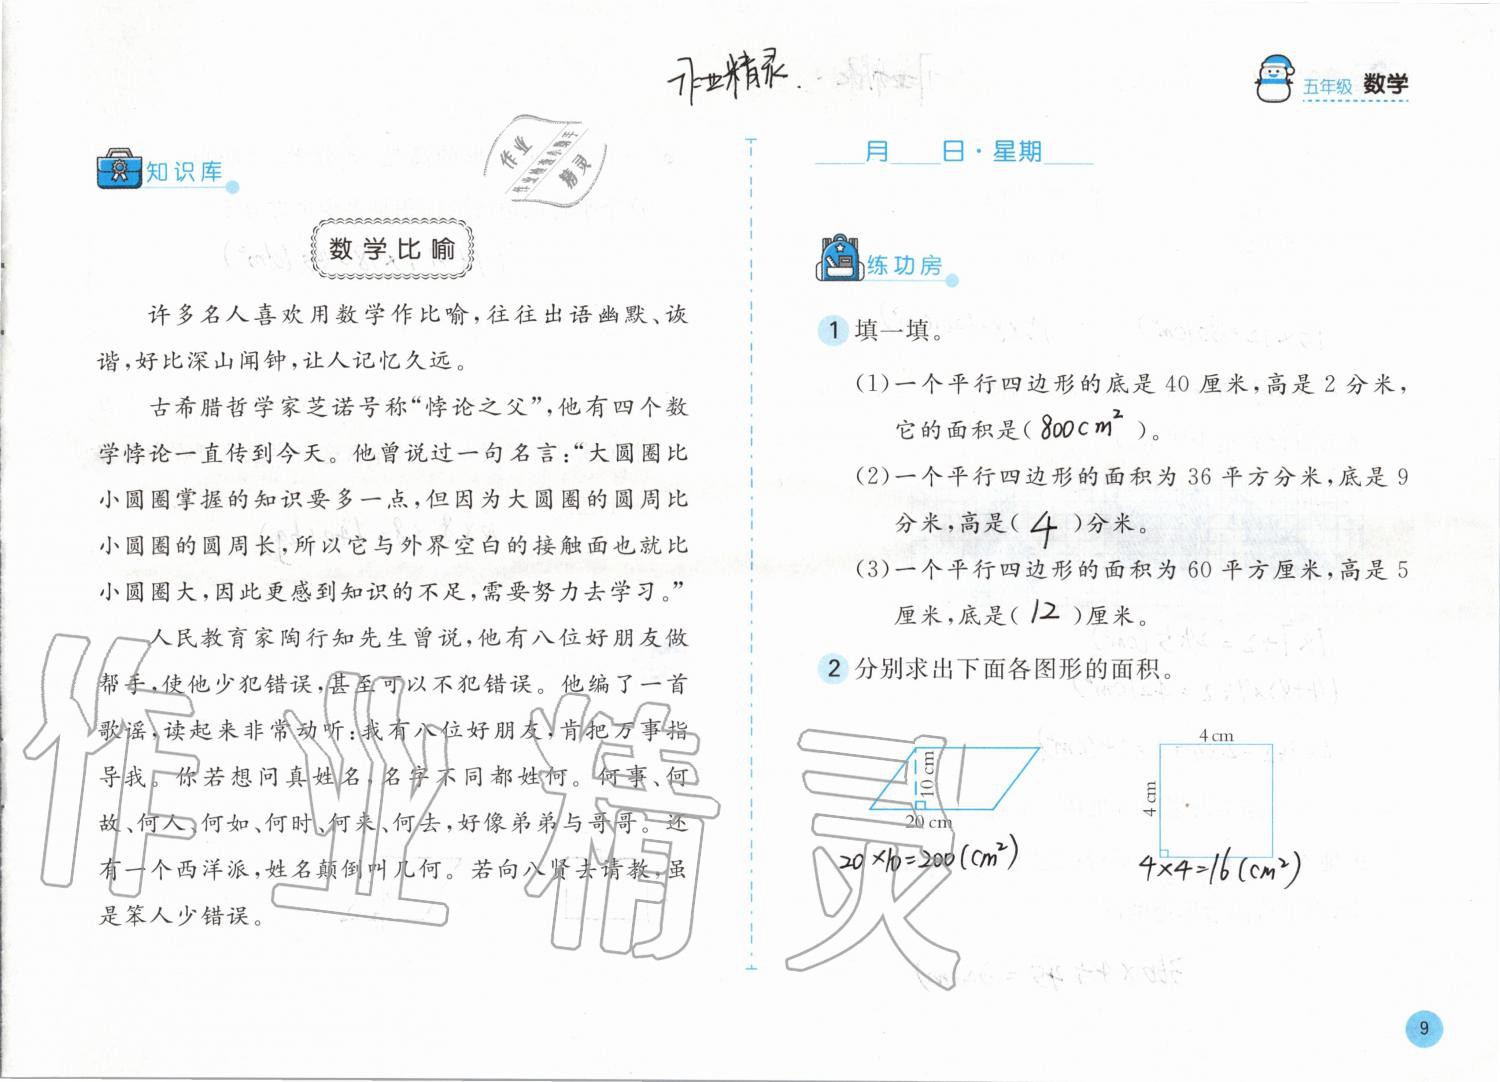 作业精灵.
五年级 数学
作业
作业精灵
精灵
知识库
数学比喻
许多名人喜欢用数学作比喻,往往出语幽默、诙
谐,好比深山闻钟,让人记忆久远。
古希腊哲学家芝诺号称“悖论之父”,他有四个数
学悖论一直传到今天。他曾说过一句名言:“大圆圈比
小圆圈掌握的知识要多一点,但因为大圆圈的圆周比
小圆圈的圆周长,所以它与外界空白的接触面也就比
小圆圈大,因此更感到知识的不足,需要努力去学习。”
人民教育家陶行知先生曾说,他有八位好朋友做
帮手,使他少犯错误,甚至可以不犯错误。他编了一首
歌谣,读起来非常动听:我有八位好朋友,肯把万事指
导我。你若想问真姓名,名字不同都姓何。何事、何
故、何人、何如、何时、何来、何去,好像弟弟与哥哥。还
有一个西洋派,姓名颠倒叫几何。若向八贤去请教,虽
是笨人少错误。
____月____日·星期____
练功房
1 填一填。
(1)一个平行四边形的底是 40 厘米,高是 2 分米,
它的面积是( 800cm² )。
(2)一个平行四边形的面积为 36 平方分米,底是 9
分米,高是( 4 )分米。
(3)一个平行四边形的面积为 60 平方厘米,高是 5
厘米,底是( 12 )厘米。
2 分别求出下面各图形的面积。
10 cm
20 cm
20×10=200(cm²)
4 cm
4 cm
4×4=16(cm²)
9